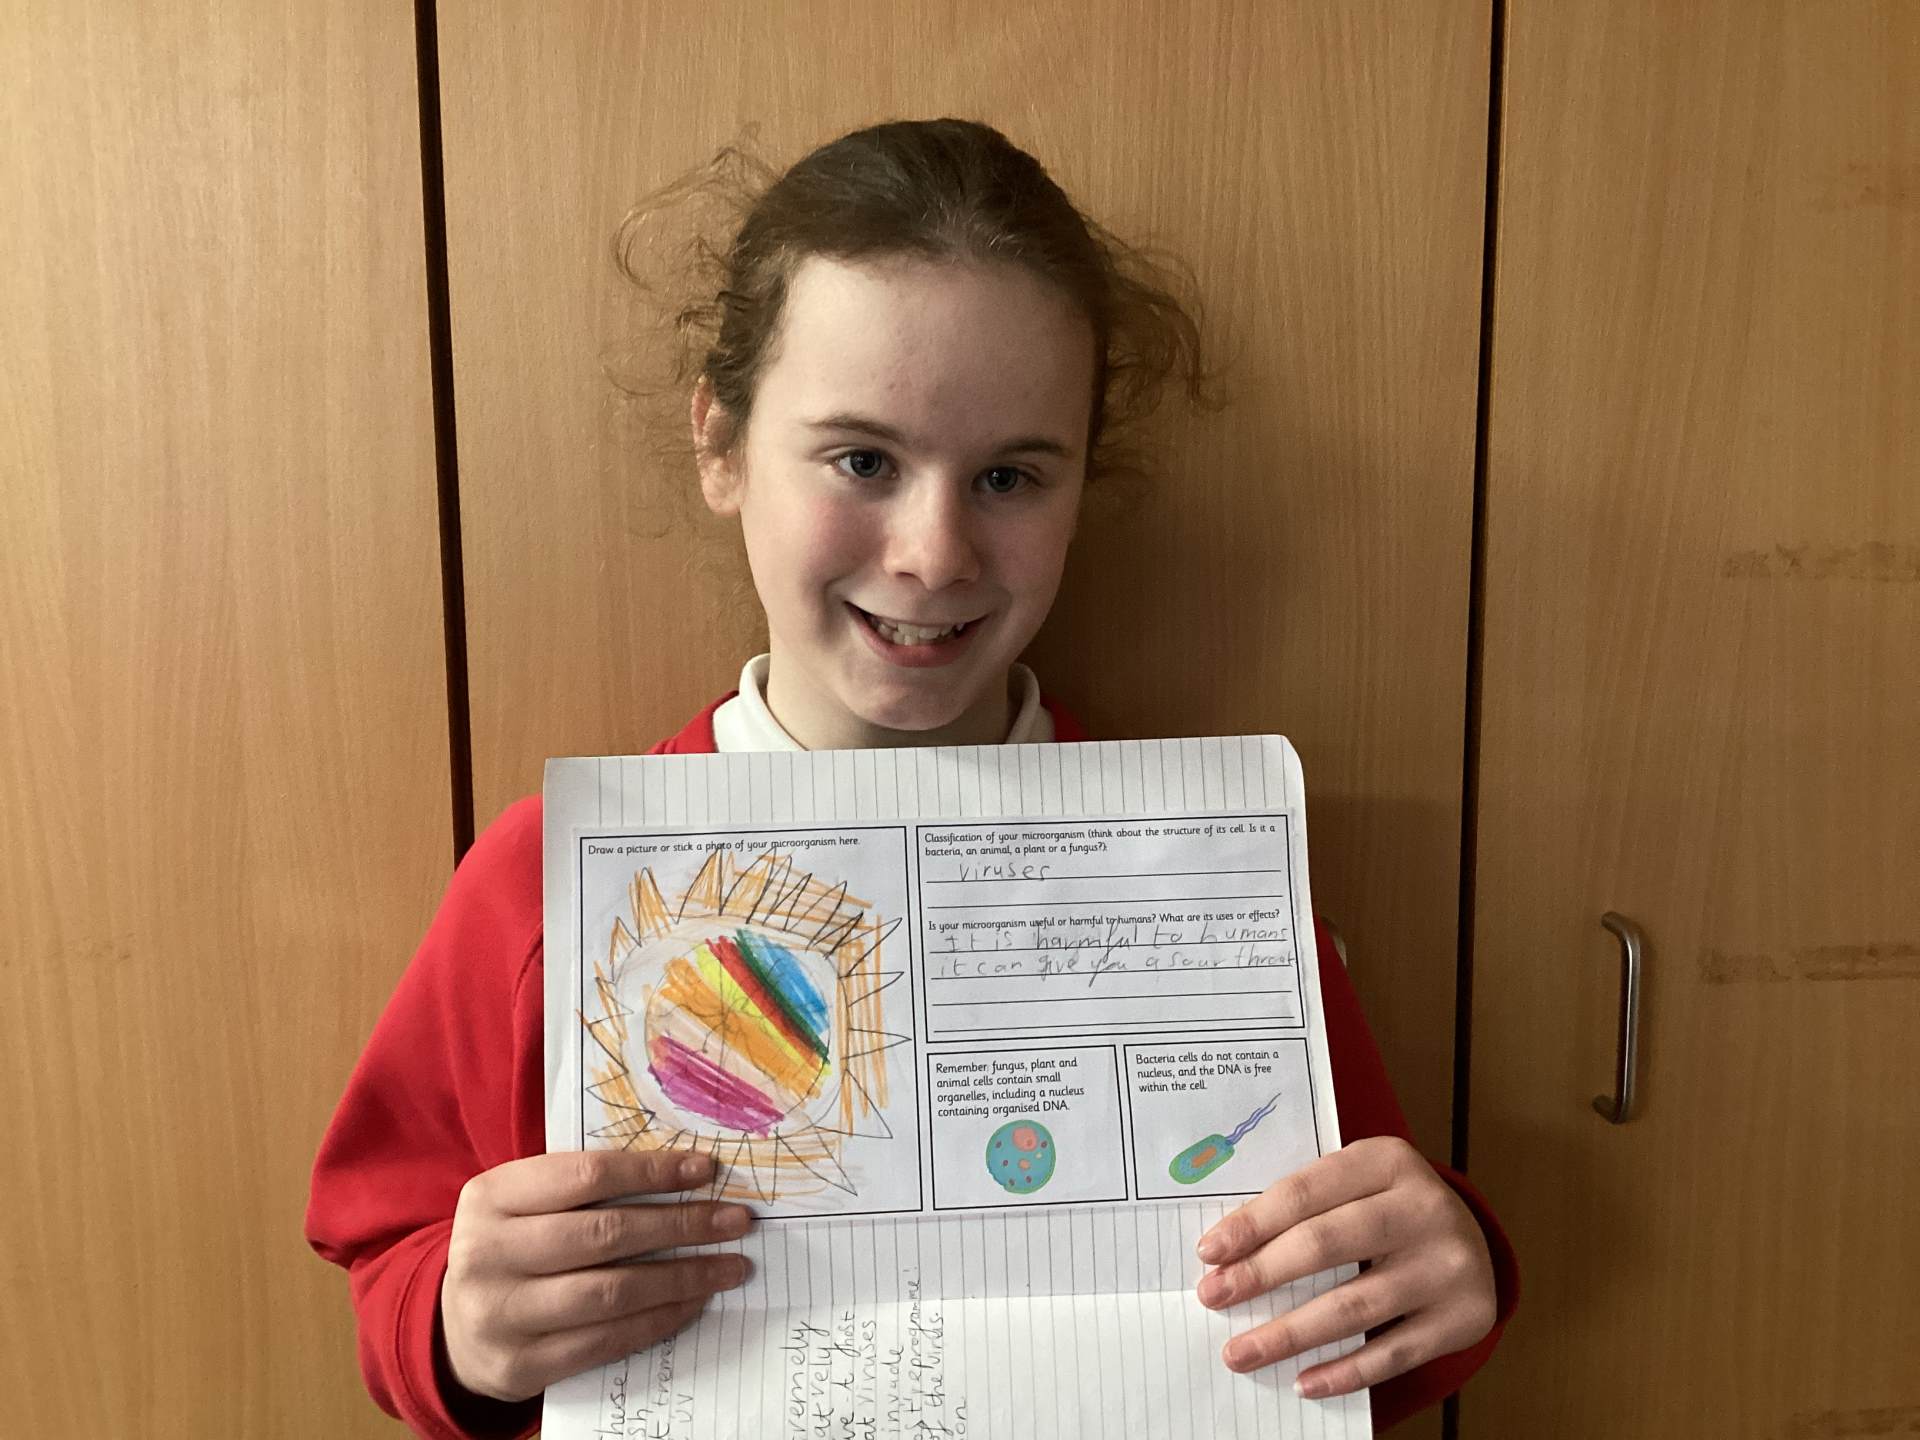 Draw a picture or stick a photo of your microorganism here.
Classification of your microorganism (think about the structure of its cell. Is it a
bacteria, an animal, a plant or a fungus?):
viruses
Is your microorganism useful or harmful to humans? What are its uses or effects?
It is harmful to humans
it can give you a sour throat
Remember: fungus, plant and
animal cells contain small
organelles, including a nucleus
containing organised DNA.
Bacteria cells do not contain a
nucleus, and the DNA is free
within the cell.
these
sh
UV
remely
at rely
viruses
invade
reprogramme
of the virus.
on